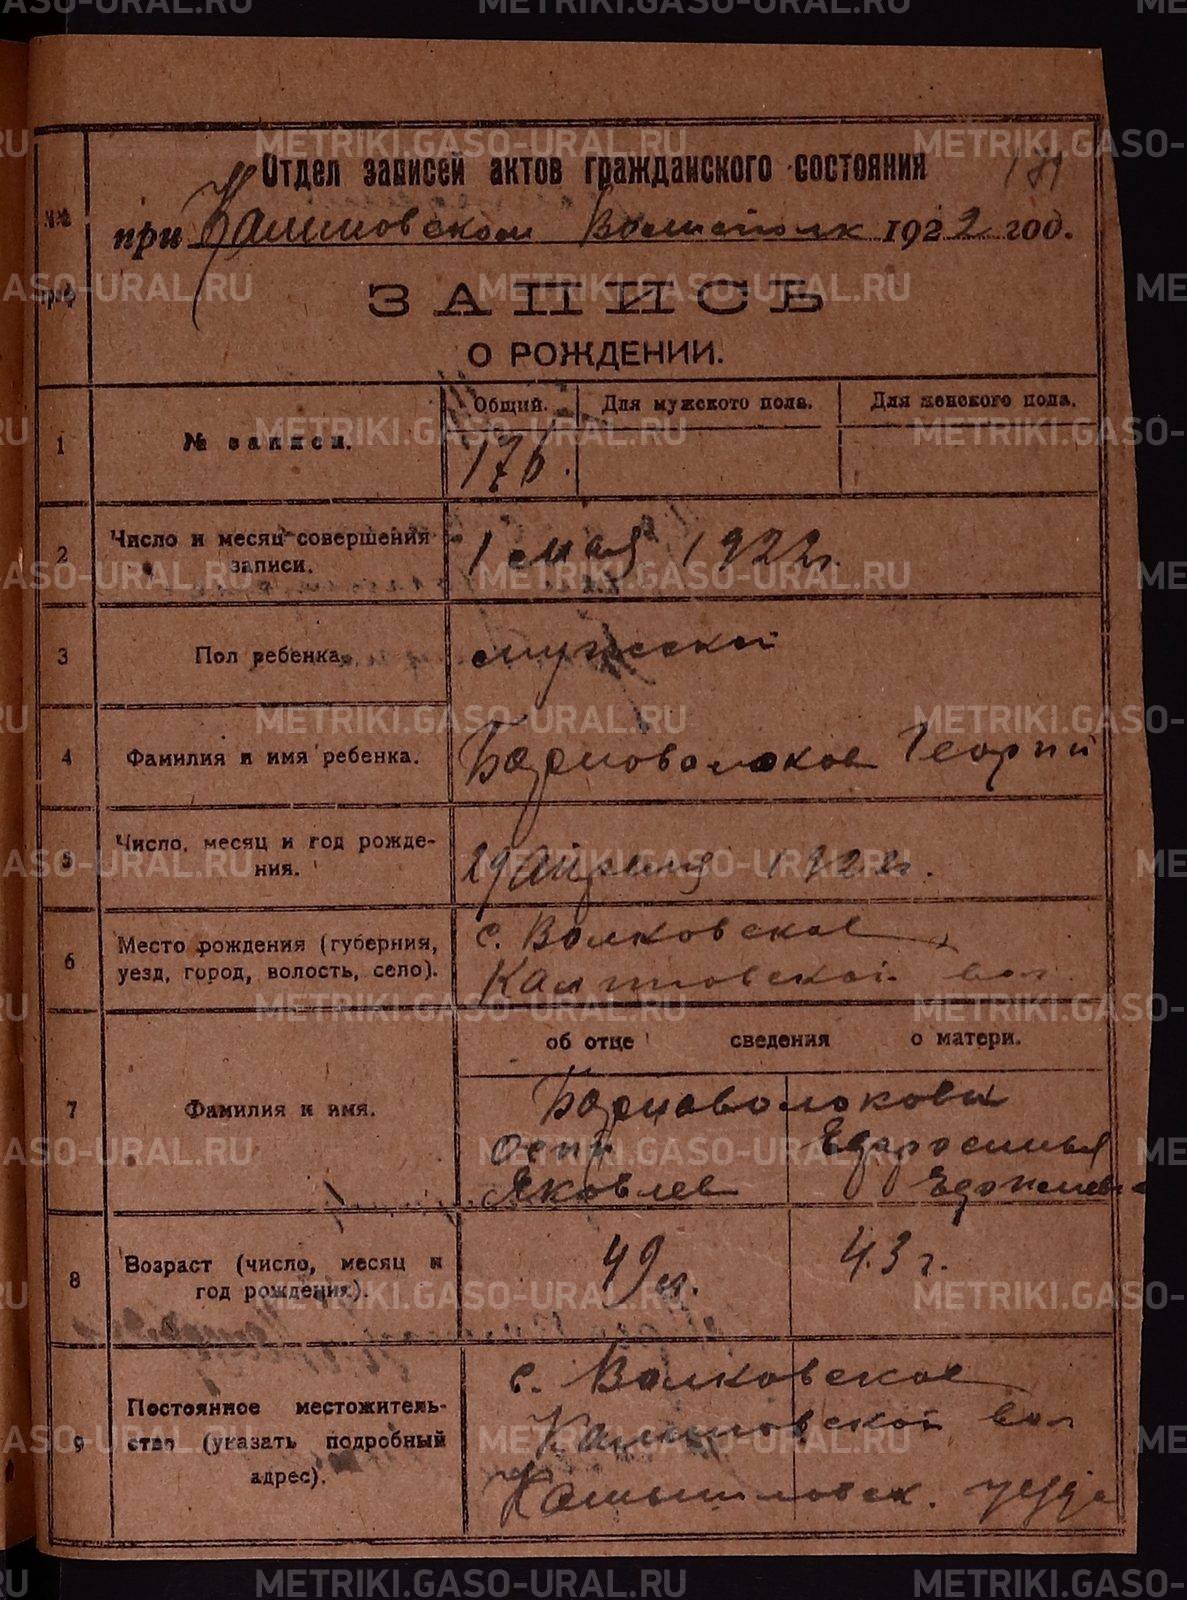 Отдел записей актов гражданского состояния 181
при Калиновском Волисполк 1922 год.
№№ граф
ЗАПИСЬ
О РОЖДЕНИИ.
Общий. Для мужского пола. Для женского пола.
1 № записи. 176.
2 Число и месяц совершения записи. 1 мая 1922 г.
3 Пол ребенка. мужской
4 Фамилия и имя ребенка. Барноволоков Георгий
5 Число, месяц и год рожде-
ния. 29 Апреля 1922 г.
6 Место рождения (губерния, с. Волковское
уезд, город, волость, село). Калиновской вол.
об отце сведения о матери.
7 Фамилия и имя. Барноволоковы
Осип
Яковлев
8 Возраст (число, месяц и 49 л. 43 г.
год рождения).
9 Постоянное местожитель- с. Волковское
ство (указать подробный Калиновской вол
адрес). Камышловск. уезда
METRIKI.GASO-URAL.RU